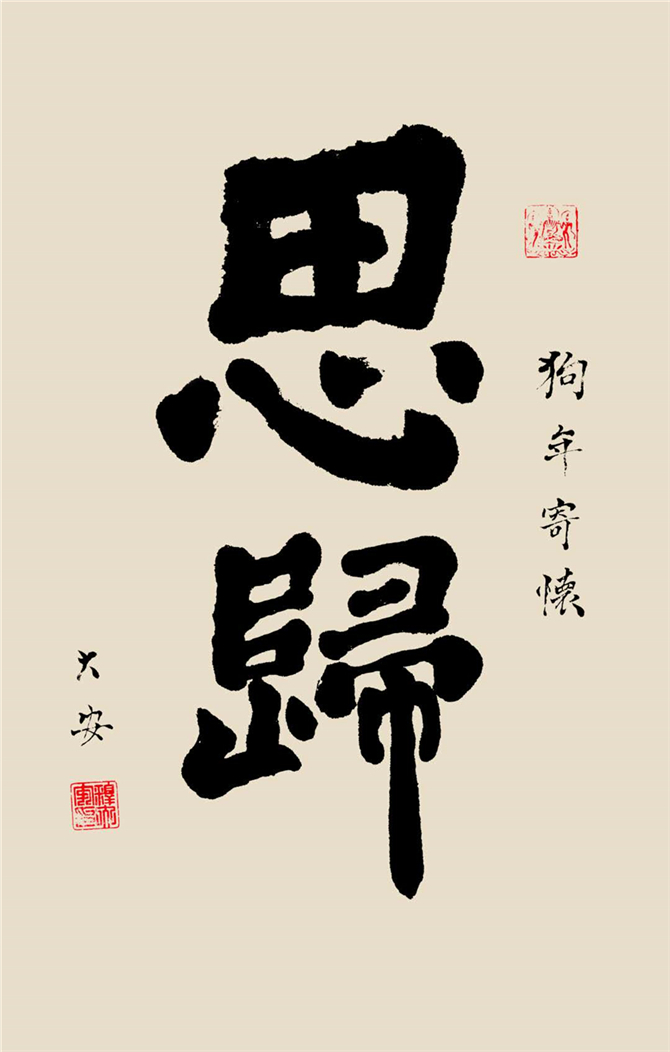 狗年寄懷
思歸
大安